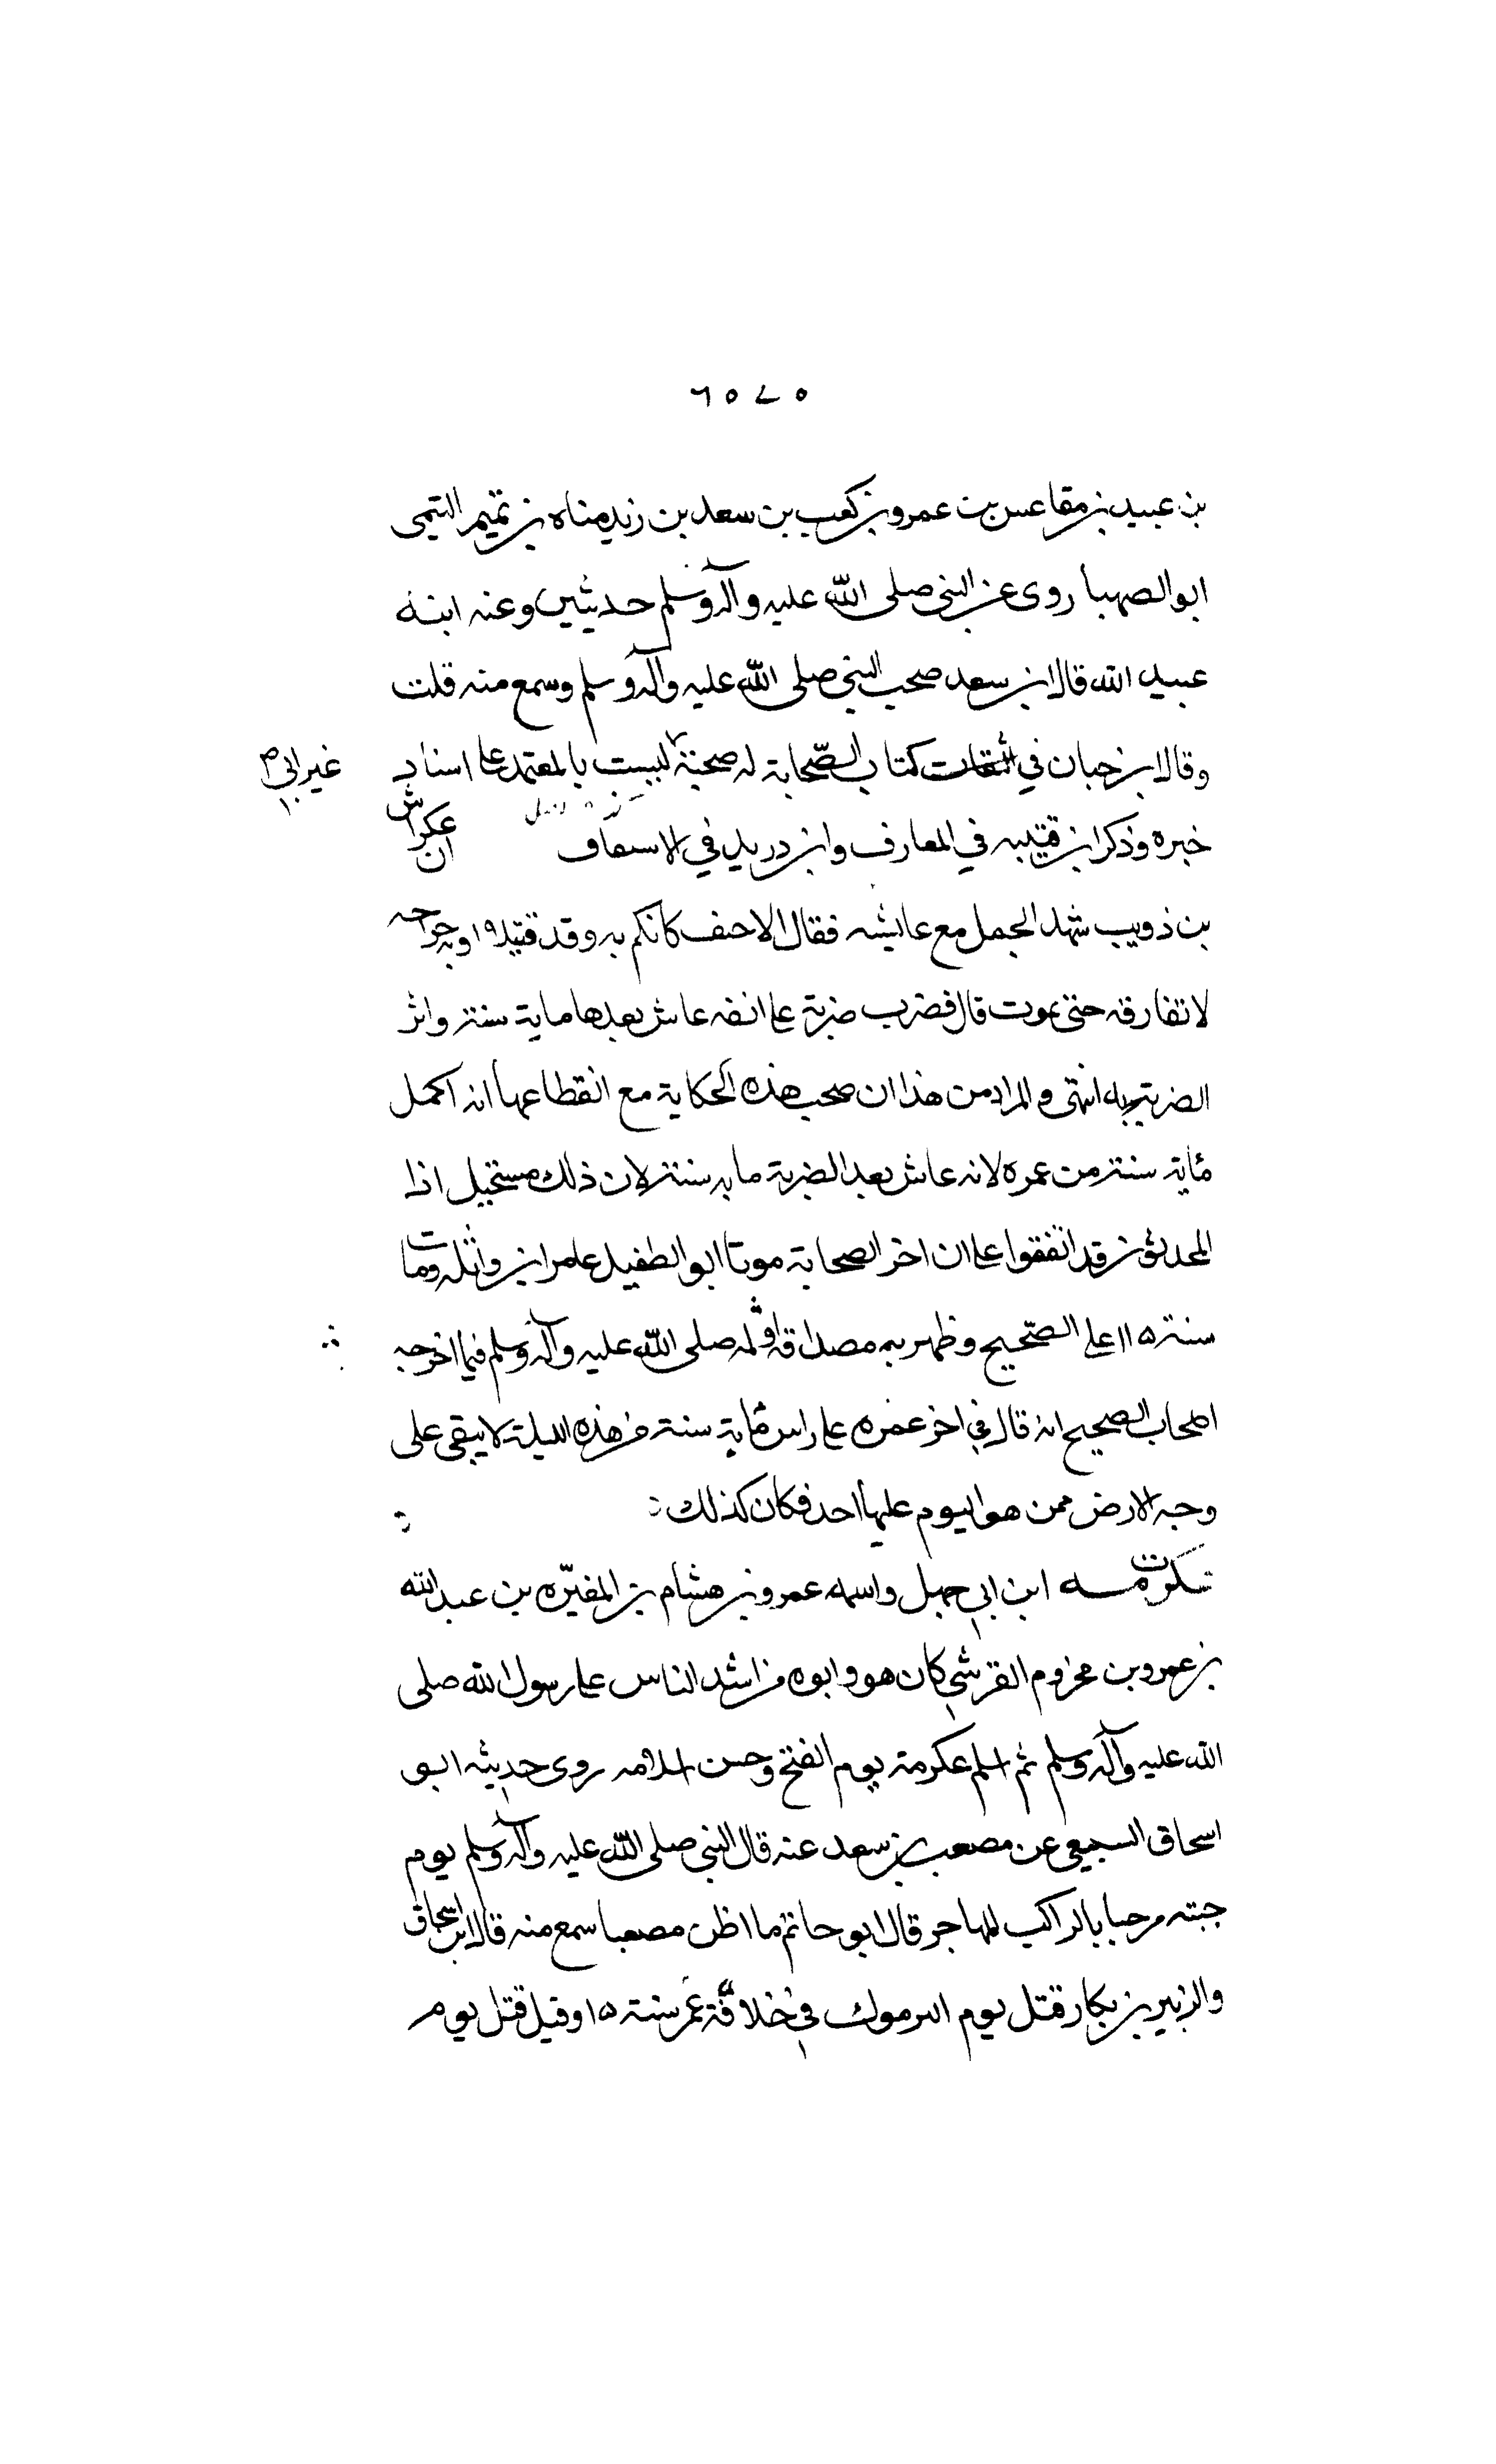 ٦٥٧٥
بن عبيد بن مقاعس بن عمرو بن كعب بن سعد بن زيد مناه بن تميم التيمى
ابو الصهبا روى عن النبي صلى الله عليه وآله وسلم حديثين وعنه ابنه
عبيد الله قال ابن سعد صحب النبي صلى الله عليه وآله وسلم وسمع منه قلت
وقال ابن حبان في الثقات كتاب الصّحابة له صحبة ليست بالمعتمد على اسناد
غير انى
خبره وذكر ابن قتيبه في المعارف وابن دريد في الاسعاف ان عكراش
بن ذويب شهد الجمل مع عايشه فقال الاحنف كانكم به وقد قتيلا وبه جراحه
لا تفارقه حتى يموت قال فضرب ضربة على انفه عاش بعدها ماية سنة واثر
الضربة به انتهى والمراد من هذا ان صحت هذه الحكاية مع انقطاعها انه اكمل
ماية سنة من عمره لا انه عاش بعد الضربة مايه سنة لان ذلك مستحيل اذا
المحدثون قد اتفقوا على ان اخر الصحابة موتا ابو الطفيل عامر ابن واثله ومات
سنة ١١٥ على الصّحيح وظهر به مصداق قوله صلى الله عليه وآله وسلم فيما اخرجه
اصحاب الصحيح انه قال في اخر عمره على راس ماية سنة من هذه الليلة لا يبقى على
وجه الارض ممن هو اليوم عليها احد فكان كذلك
عكرمه ابن ابي جهل واسمه عمرو بن هشام بن المغيّره بن عبد الله
بن عمرو بن مخزوم القرشي كان هو وابوه من اشد الناس على رسول الله صلى
الله عليه وآله وسلم ثم اسلم عكرمة يوم الفتح وحسن اسلامه روى حديثه ابو
اسحاق السبيعي عن مصعب بن سعد عنه قال النبي صلى الله عليه وآله وسلم يوم
جيته مرحبا بالراكب المهاجر قال ابو حاتم ما اظن مصعبا سمع منه قال ابن اسحاق
والزبير بن بكار قتل يوم اليرموك في خلافة عمر سنة ١٥ وقيل قتل يوم